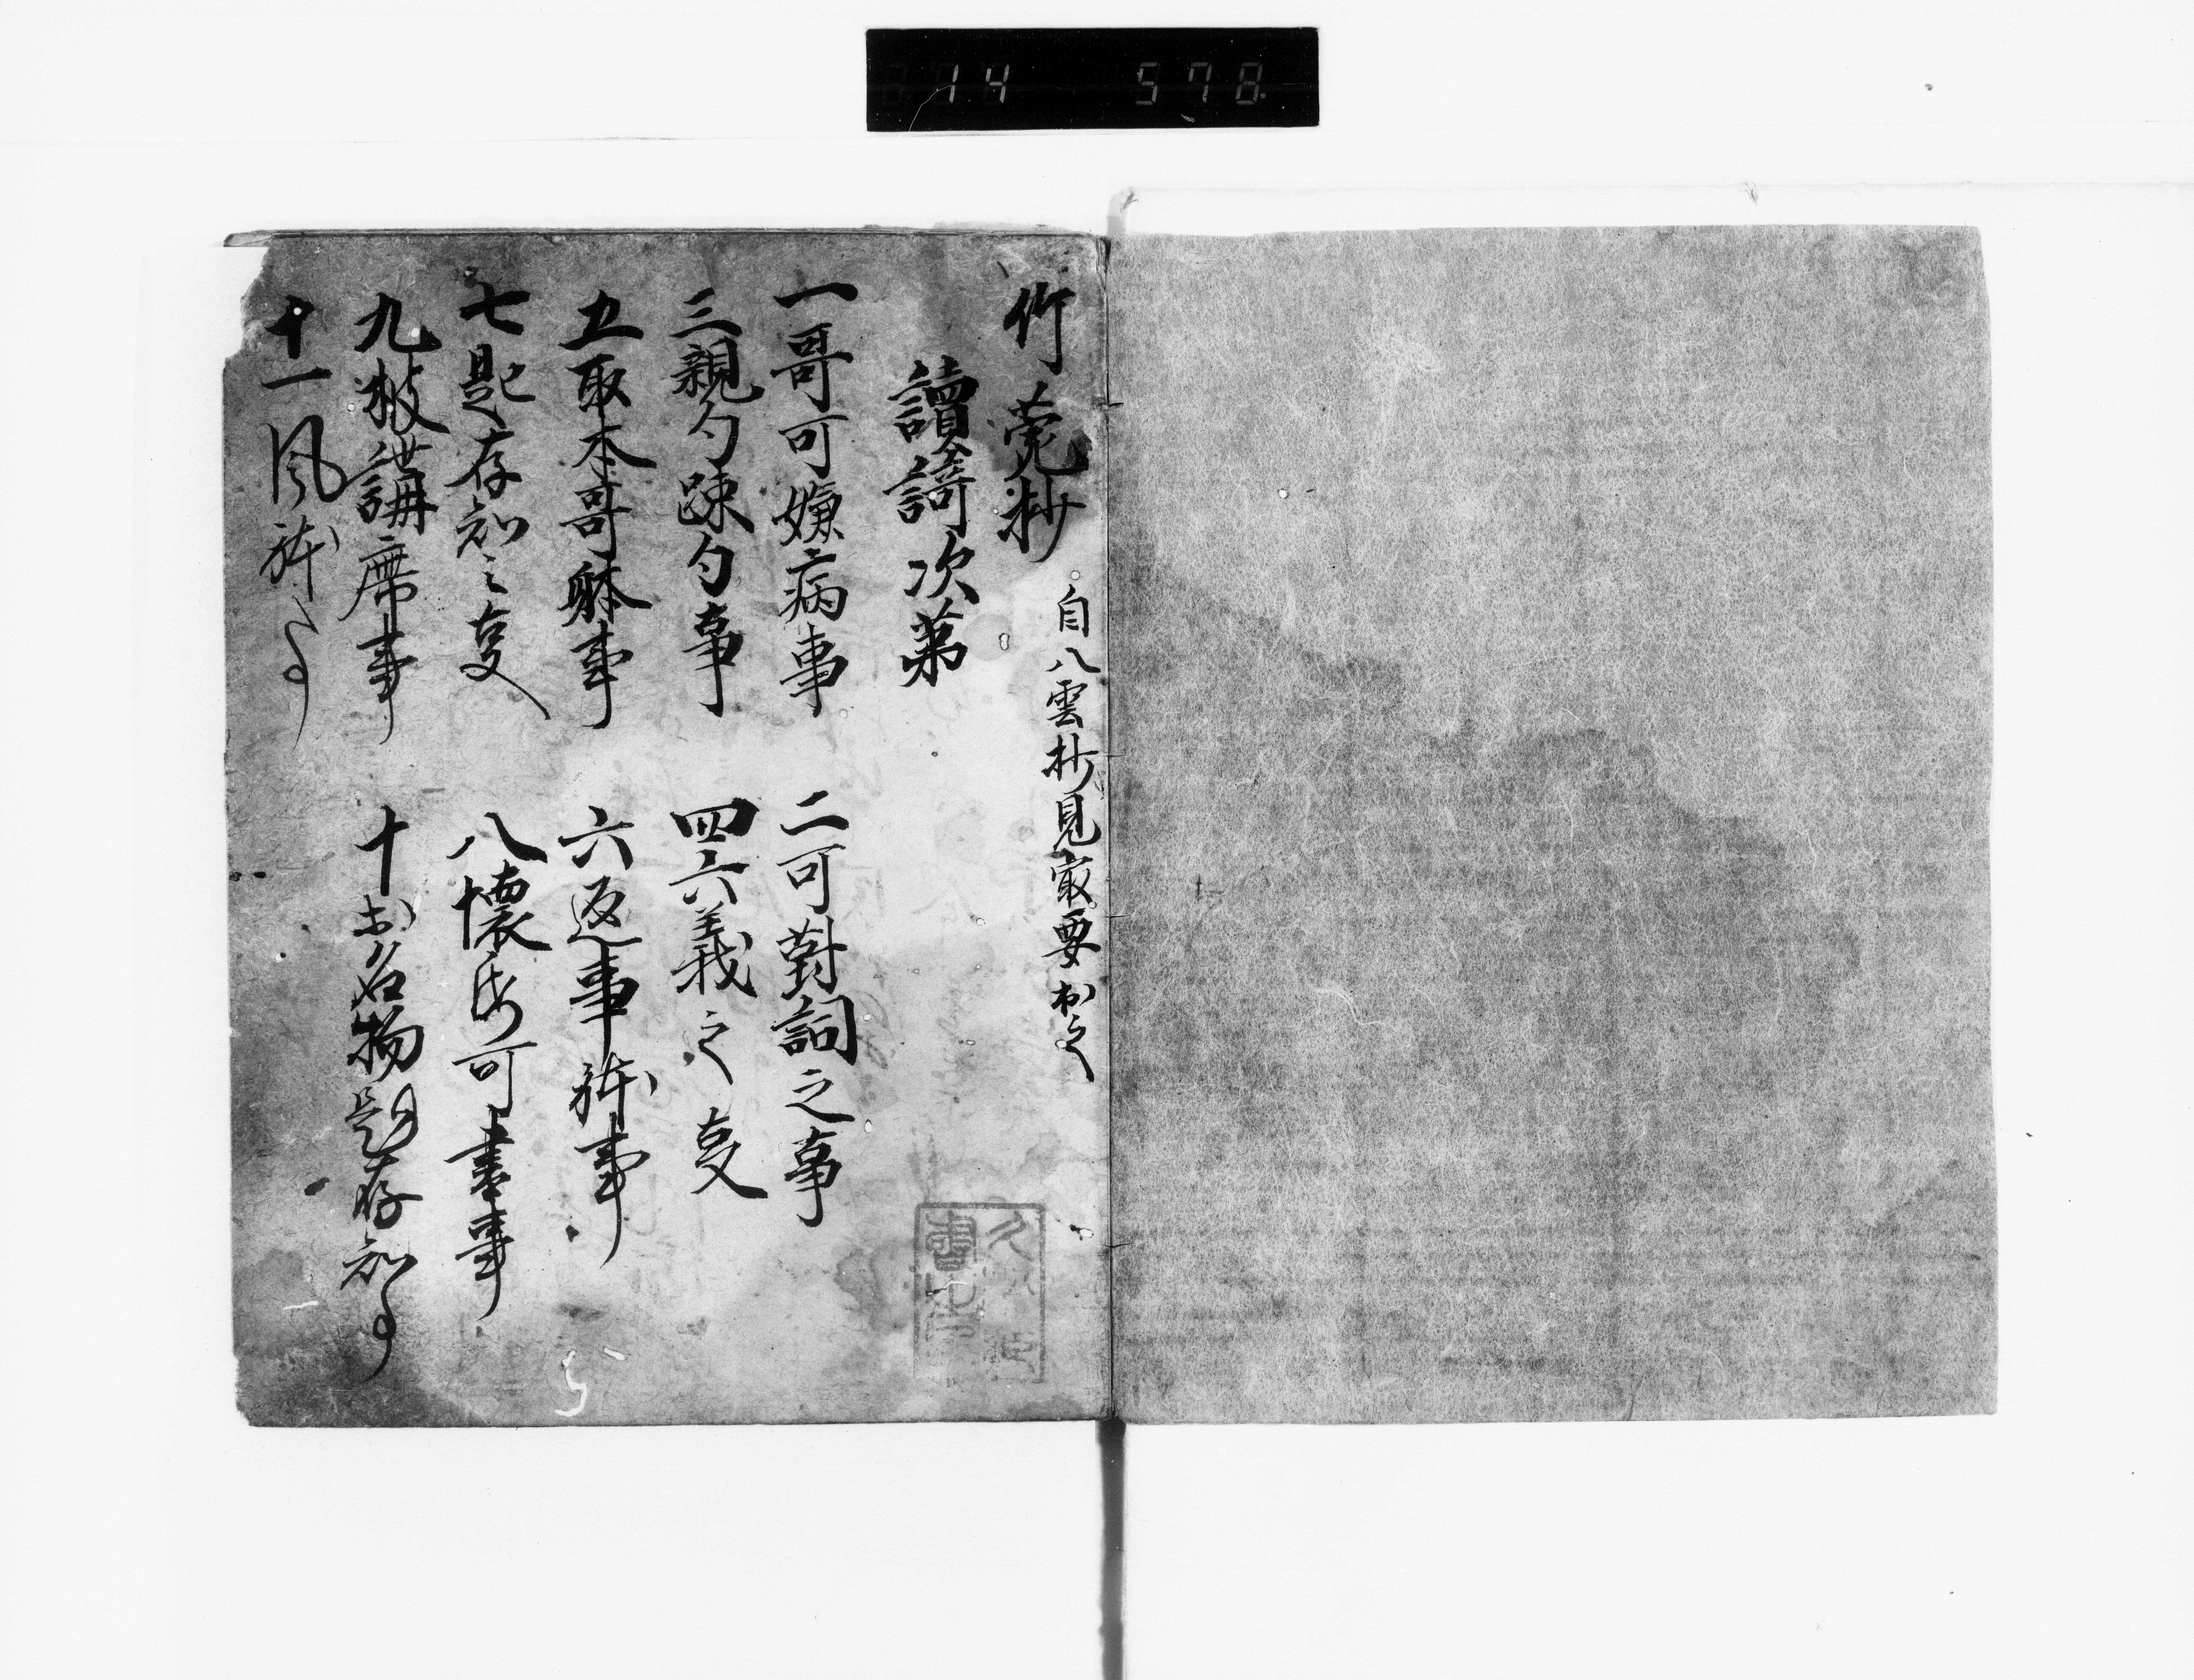 14 578
竹苑抄
自八雲抄見最要出之
讀謌次第
一哥可嫌病事
二可對詞之事
三親句疎句事
四六義之事
五取本哥躰事
六返事躰事
七題存知之事
八懐帋可書事
九披講席事
十出名物題存知事
十一風躰事